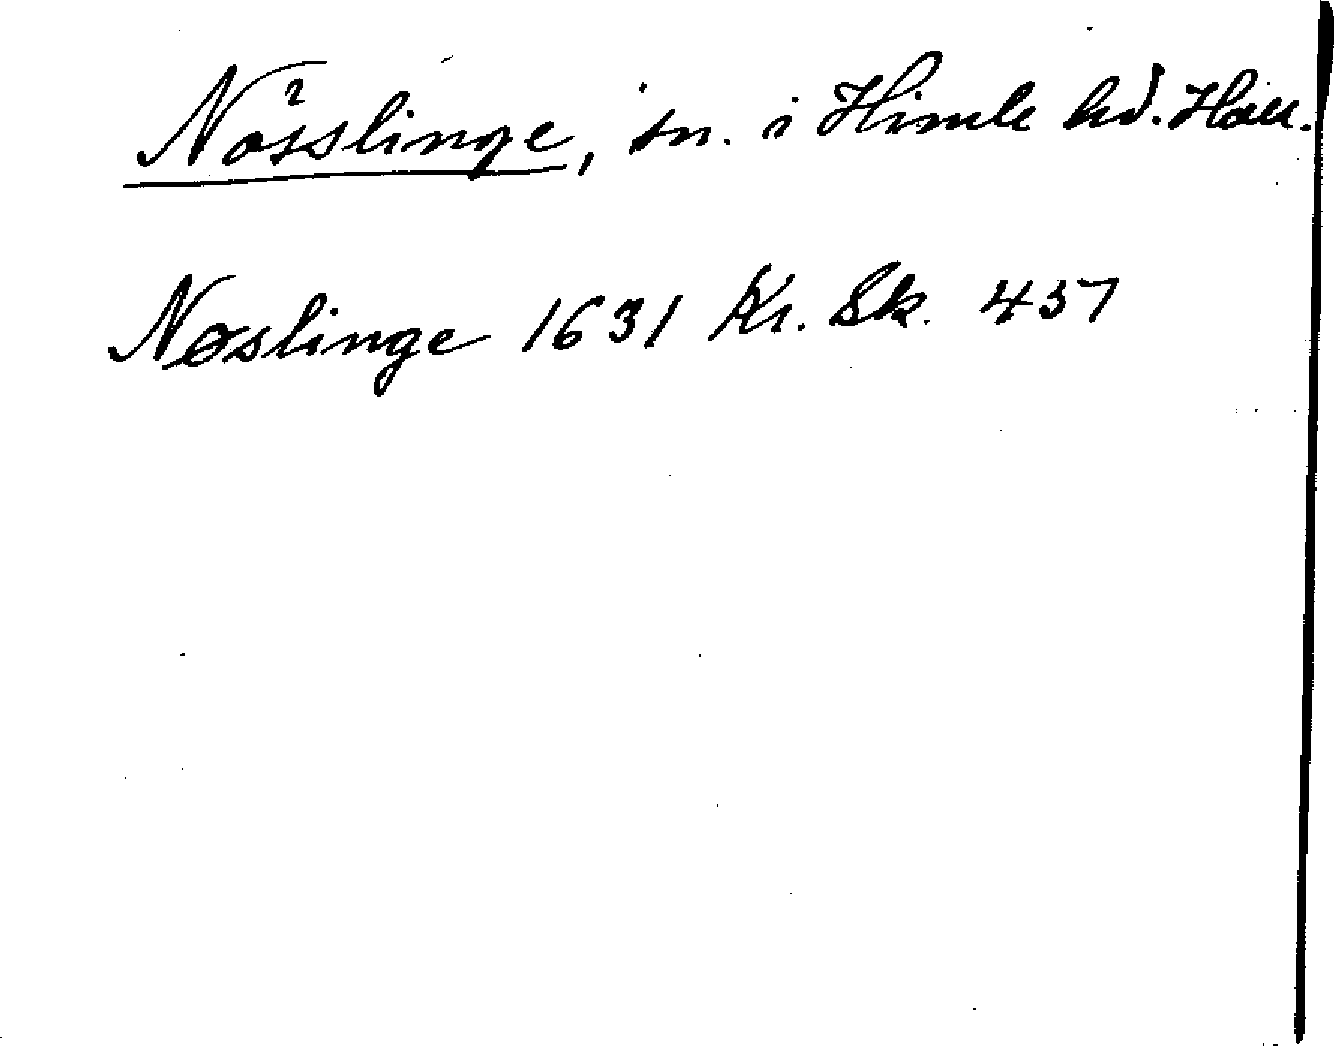 Nösslinge, sn. i Himle hd. Hall.
Nøslinge 1631 Kr. Sk. 437